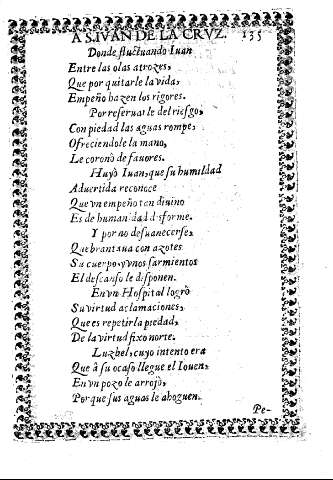 A S. IVAN DE LA CRVZ. 135
Donde fluctuando Iuan
Entre las olas atrozes,
Que por quitarle la vida,
Empeño hazen los rigores.
Por reseruarle del riesgo,
Con piedad las aguas rompe,
Ofreciendole la mano,
Le coronò de fauores.
Huyò Iuan, que su humildad
Aduertida reconoce
Que vn empeño tan diuino
Es de humanidad disforme.
Y por no desuanecerse,
Quebrantaua con azotes
Su cuerpo, y vnos sarmientos
El descanso le disponen.
En vn Hospital logrò
Su virtud aclamaciones,
Que es repetirla piedad,
De la virtud fixo norte.
Luzbel, cuyo intento era
Que à su ocaso llegue el Iouen,
En vn pozo le arrojò,
Porque sus aguas le ahoguen.
Pe-